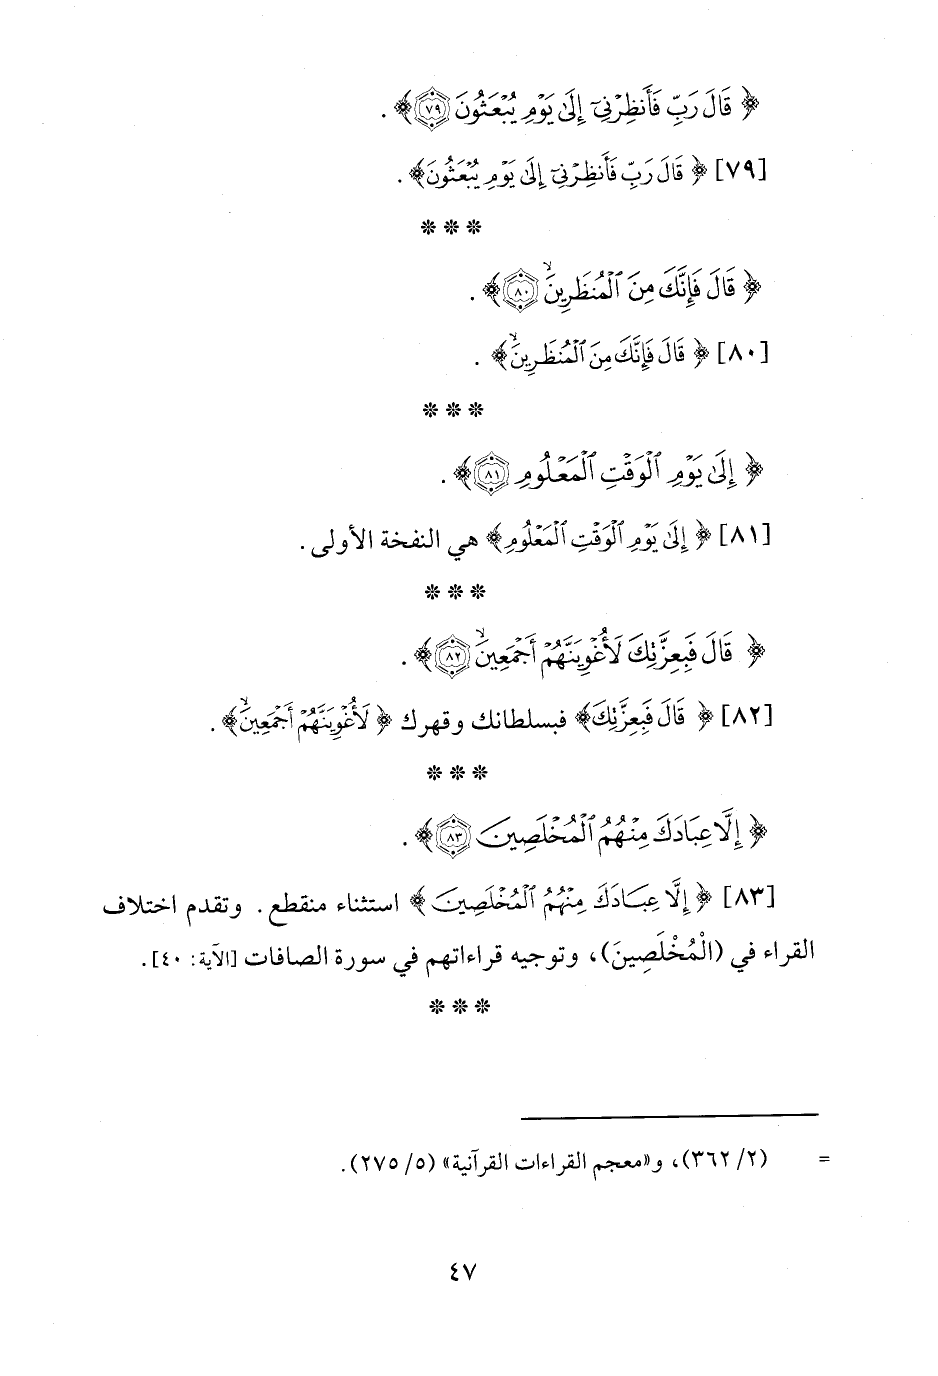 ﴿ قَالَ رَبِّ فَأَنظِرْنِيٓ إِلَىٰ يَوْمِ يُبْعَثُونَ ٧٩ ﴾ .
[٧٩] ﴿ قَالَ رَبِّ فَأَنظِرْنِيٓ إِلَىٰ يَوْمِ يُبْعَثُونَ﴾ .
* * *
﴿ قَالَ فَإِنَّكَ مِنَ ٱلْمُنظَرِينَۙ ٨٠ ﴾ .
[٨٠] ﴿ قَالَ فَإِنَّكَ مِنَ ٱلْمُنظَرِينَۙ﴾ .
* * *
﴿ إِلَىٰ يَوْمِ ٱلْوَقْتِ ٱلْمَعْلُومِ ٨١ ﴾ .
[٨١] ﴿ إِلَىٰ يَوْمِ ٱلْوَقْتِ ٱلْمَعْلُومِ﴾ هي النفخة الأولى .
* * *
﴿ قَالَ فَبِعِزَّتِكَ لَأُغْوِيَنَّهُمْ أَجْمَعِينَۙ ٨٢ ﴾ .
[٨٢] ﴿ قَالَ فَبِعِزَّتِكَ﴾ فبسلطانك وقهرك ﴿ لَأُغْوِيَنَّهُمْ أَجْمَعِينَۙ﴾ .
* * *
﴿ إِلَّا عِبَادَكَ مِنْهُمُ ٱلْمُخْلَصِينَ ٨٣ ﴾ .
[٨٣] ﴿ إِلَّا عِبَادَكَ مِنْهُمُ ٱلْمُخْلَصِينَ ﴾ استثناء منقطع . وتقدم اختلاف
القراء في (الْمُخْلَصِينَ)، وتوجيه قراءاتهم في سورة الصافات [الآية: ٤٠].
* * *
= (٢/ ٣٦٢)، و«معجم القراءات القرآنية» (٥/ ٢٧٥).
٤٧